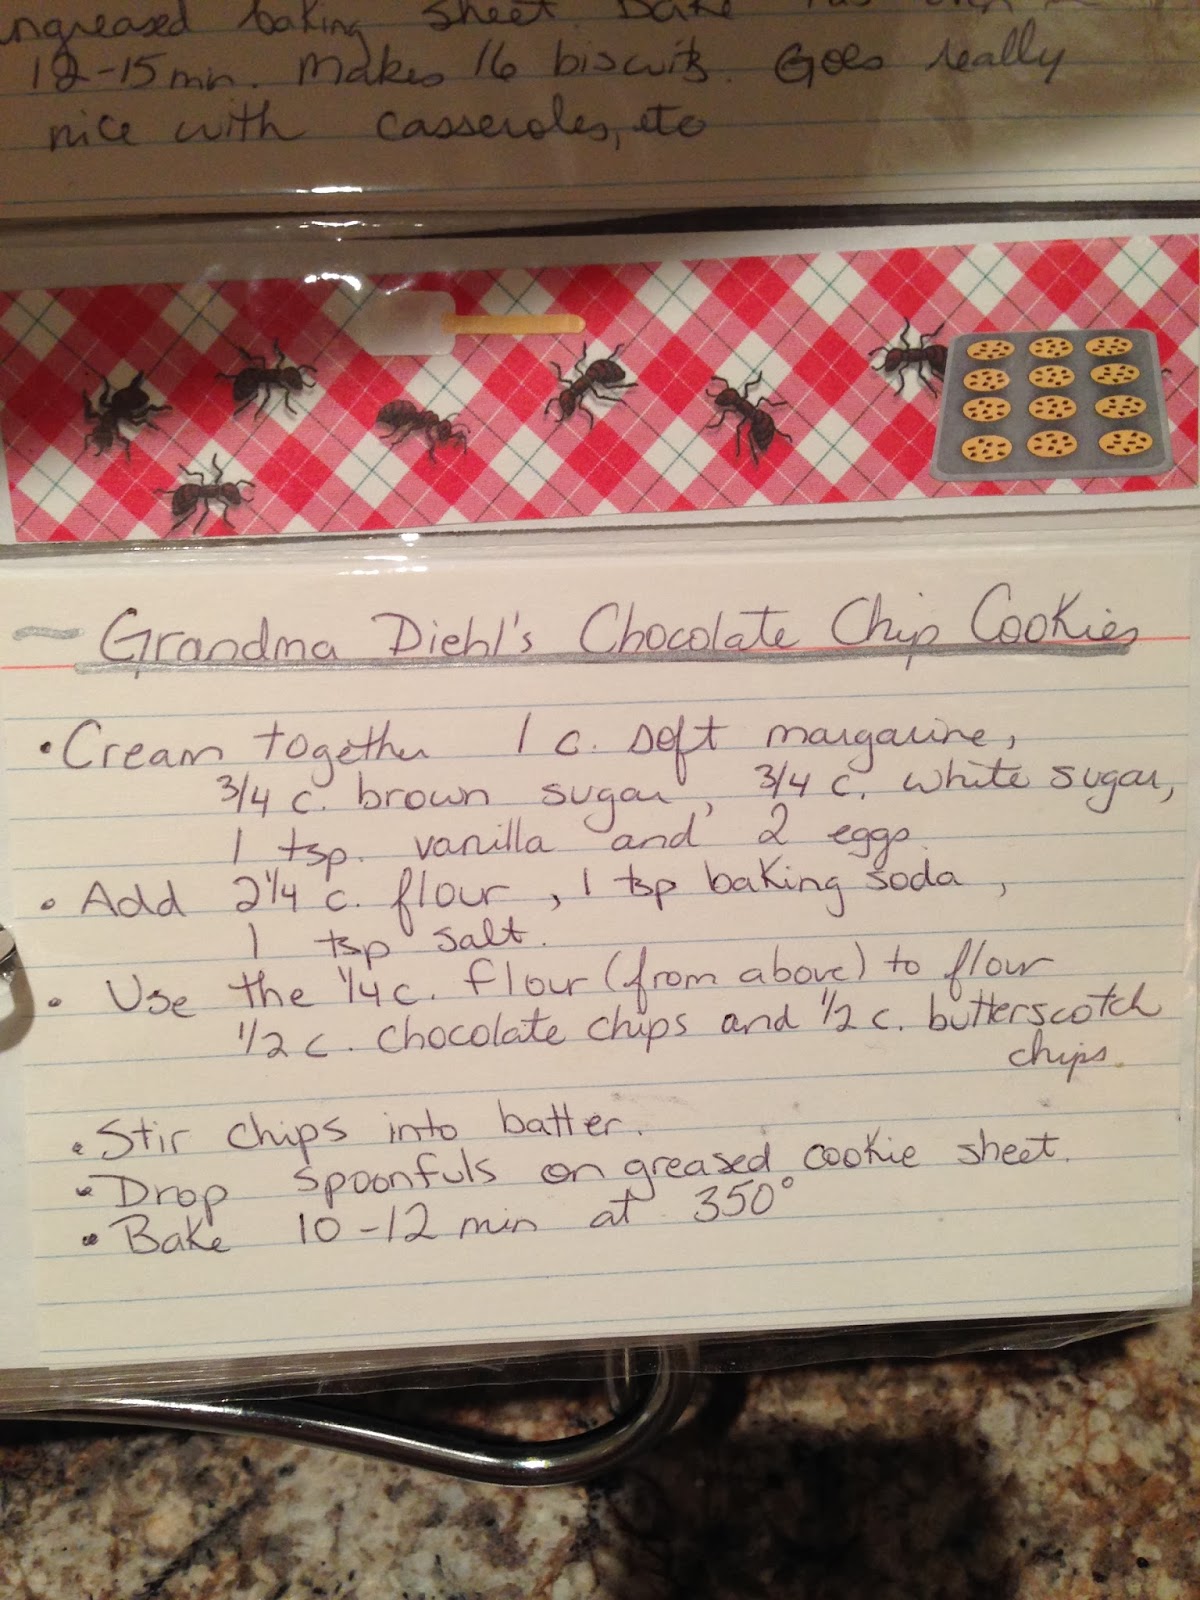 ungreased baking sheet. Bake
12-15 min. Makes 16 biscuits. Goes really
nice with casseroles, etc
Grandma Diehl's Chocolate Chip Cookies
• Cream together 1 c. soft margarine,
3/4 c. brown sugar, 3/4 c. white sugar,
1 tsp. vanilla and 2 eggs.
• Add 2 1/4 c. flour, 1 tsp baking soda,
1 tsp salt.
• Use the 1/4 c. flour (from above) to flour
1/2 c. chocolate chips and 1/2 c. butterscotch
chips.
• Stir chips into batter.
• Drop spoonfuls on greased cookie sheet.
• Bake 10-12 min at 350°